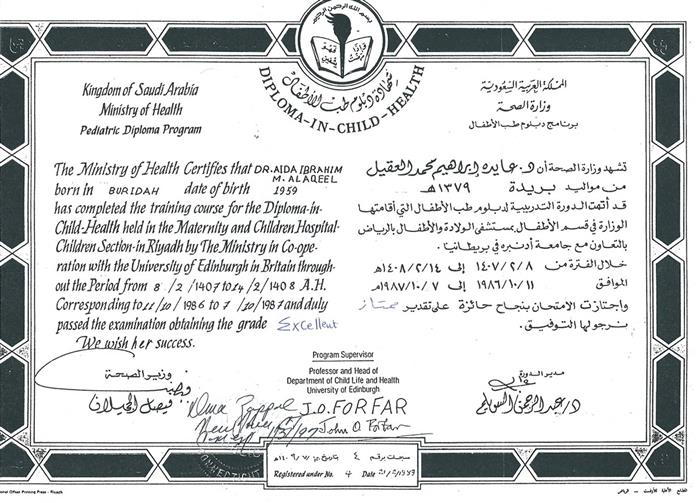 بسم الله الرحمن الرحيم
شهادة دبلوم طب الأطفال
DIPLOMA-IN-CHILD-HEALTH
Kingdom of Saudi Arabia
Ministry of Health
Pediatric Diploma Program
The Ministry of Health Certifies that DR. AIDA IBRAHIM
M. ALAQEEL
born in BURIDAH date of birth 1959
has completed the training course for the Diploma-in-
Child-Health held in the Maternity and Children Hospital-
Children Section-in Riyadh by The Ministry in Co-ope-
ration with the University of Edinburgh in Britain through-
out the Period from 8 /2 /1407 to 14/2 /1408 A.H.
Corresponding to 11/10 /1986 to 7 /10/1987 and duly
passed the examination obtaining the grade Excellent
We wish her success.
المملكة العربية السعودية
وزارة الصحة
برنامج دبلوم طب الأطفال
تشهد وزارة الصحة أن د. عايده ابراهيم محمد العقيل
من مواليد بريدة ١٣٧٩هـ
قد أتمت الدورة التدريبية لدبلوم طب الأطفال التي أقامتها
الوزارة في قسم الأطفال بمستشفى الولادة والأطفال بالرياض
بالتعاون مع جامعة أدنبره في بريطانيا.
خلال الفترة من ١٤٠٧/٢/٨ إلى ١٤٠٨/٢/١٤هـ
الموافق ١٩٨٦/١٠/١١ إلى ١٩٨٧/١٠/٧م
واجتازت الامتحان بنجاح حائزة على تقدير ممتاز
نرجو لها التوفيق.
وزير الصحة
فيصل الحجيلان
Program Supervisor
Professor and Head of
Department of Child Life and Health
University of Edinburgh
J.O. FORFAR
John O. Forfar
مدير الدورة
د/عبد الرحمن السويلم
CONNECTICUT
سجلت برقم ٤
Registered under No. 4